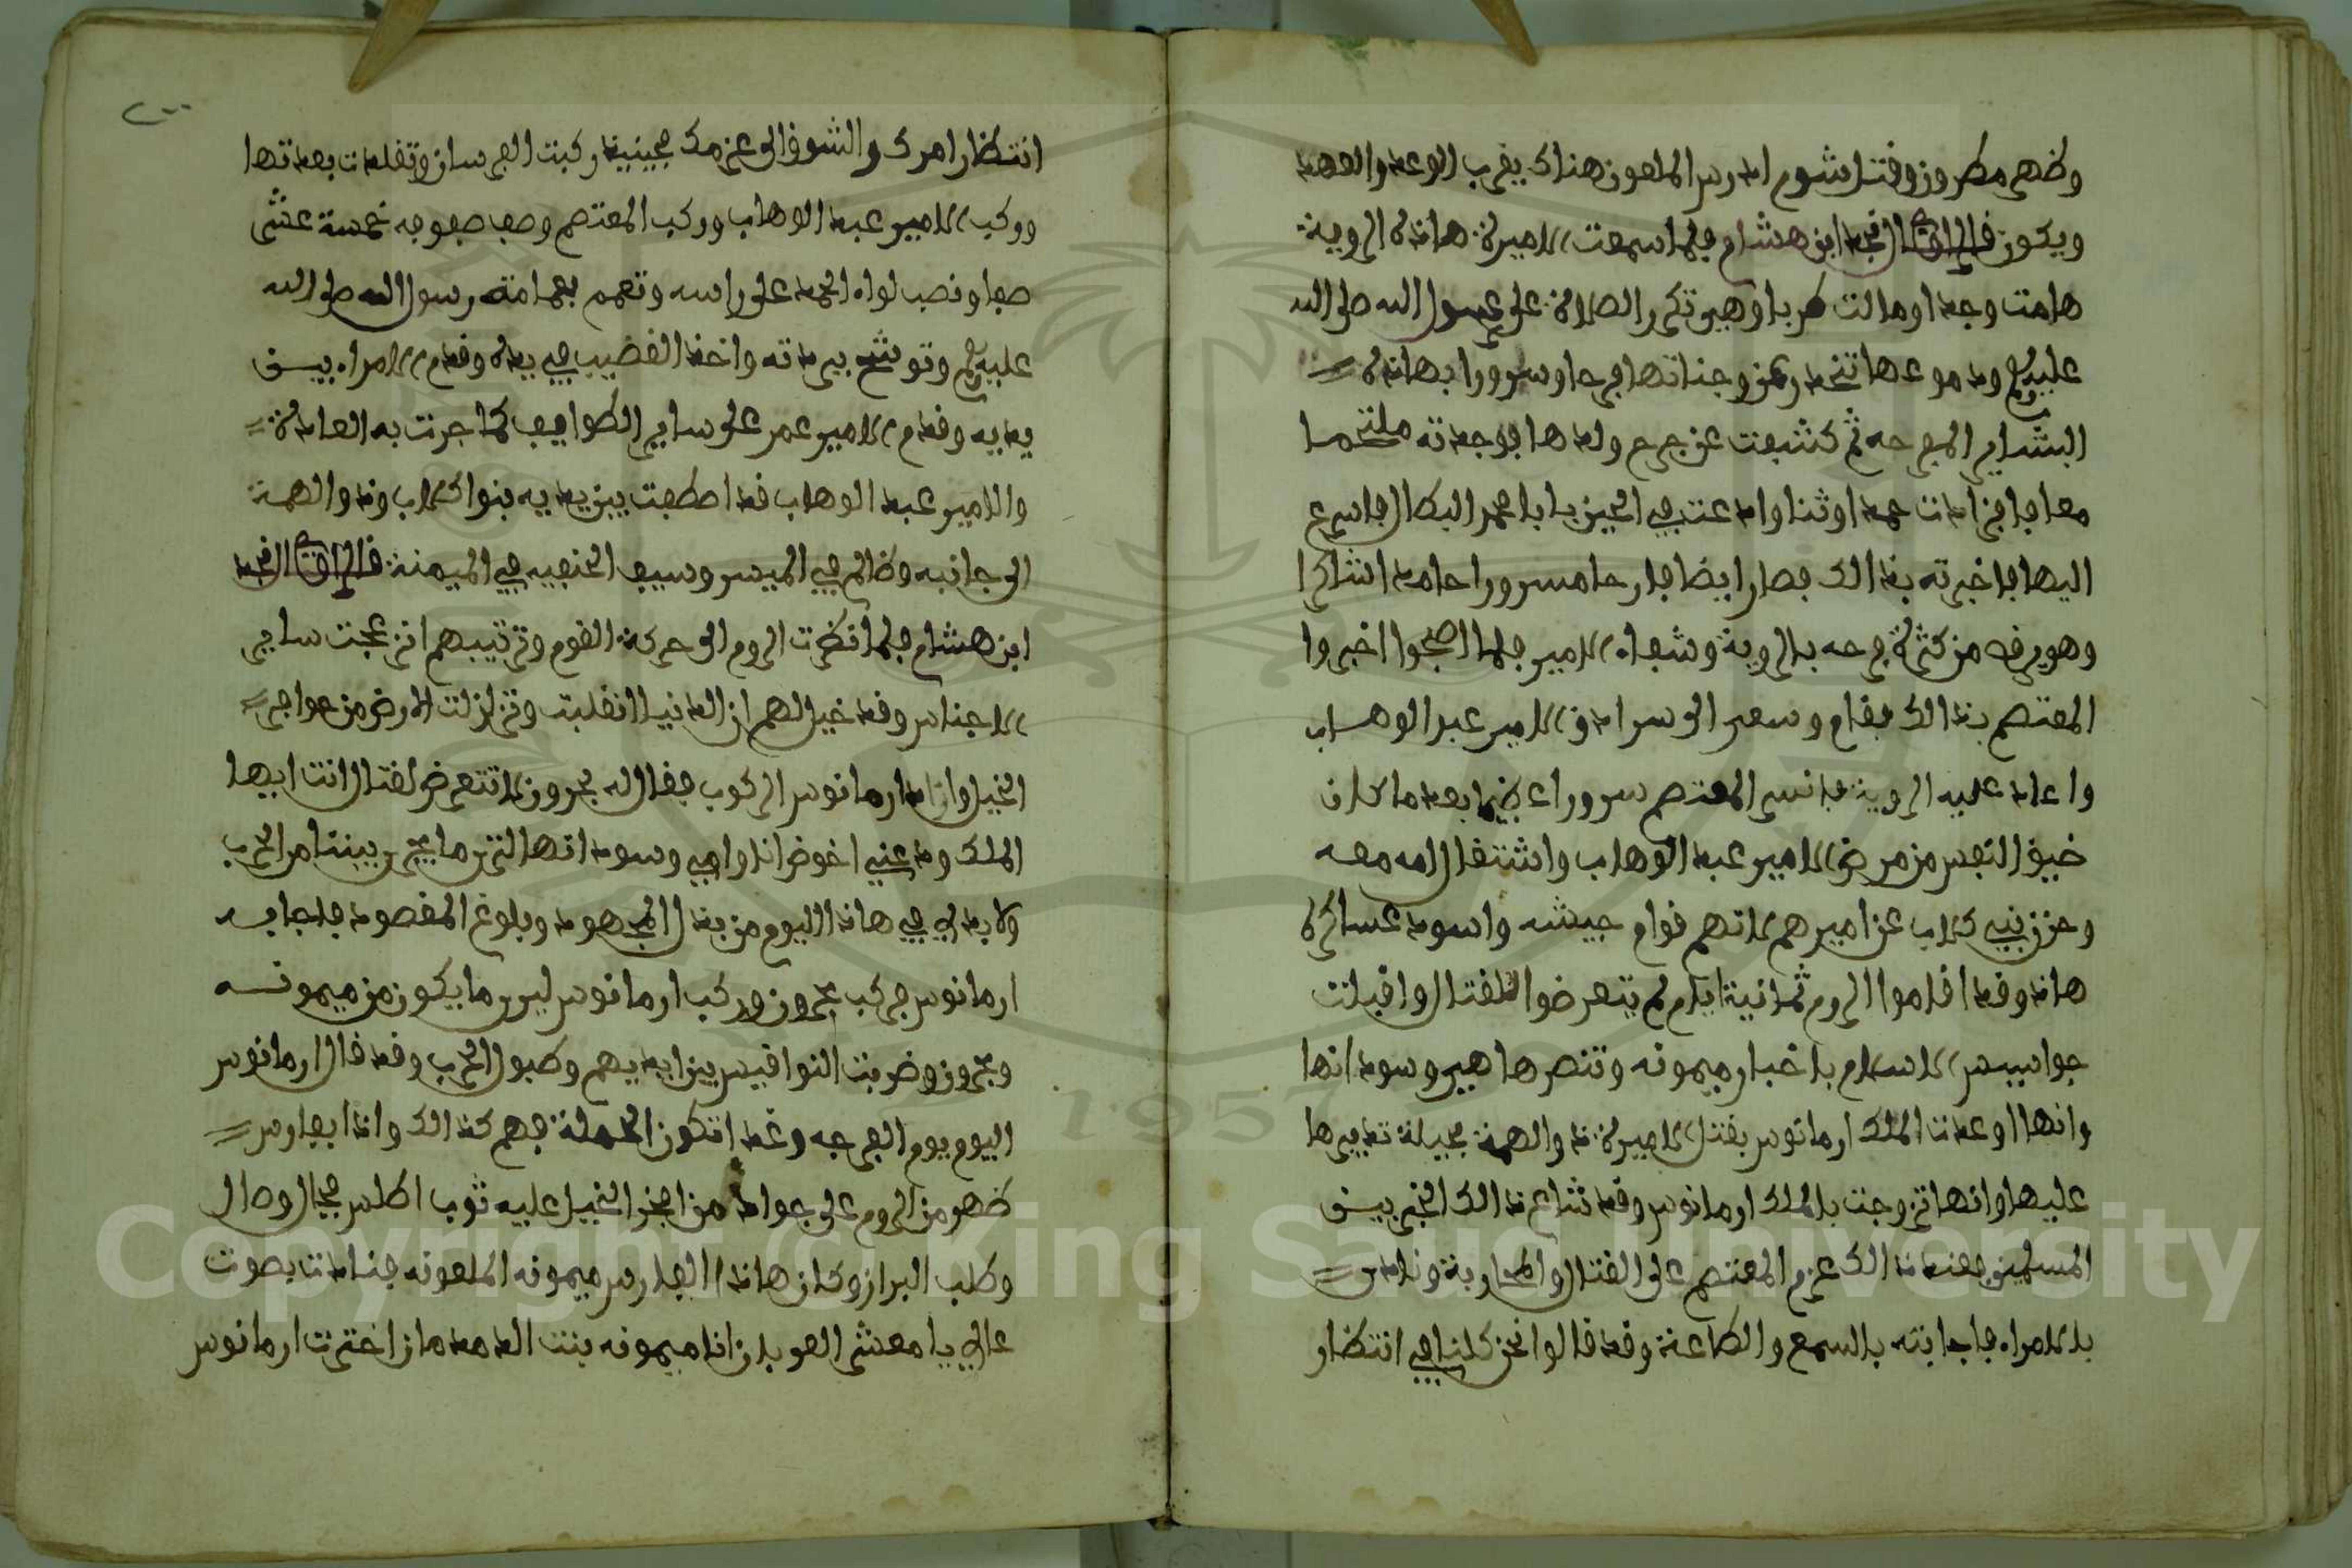 وظهر مطرون وقتل شوم ادريس الملعون هناك يقرب الوعد والعهد
ويكون قال الراوي نجد ابن هشام فلما سمعت الاميرة هاذه الروية
هامت وجدا ومالت طربا وهي تكرر الصلاة على رسول الله صلى الله
عليه وسلم ودموعها تنحدر من وجناتها فرحا وسرورا بهاذه
البشاير المفرحه ثم كشفت عن جرح ولدها فوجدته ملتحما
معافا فزادت حمدا وثنا وادعت في الحين بابا محمد البطال فاسرع
اليها فاخبرته بذالك فصار ايضا فارحا مسرورا حامدا شاكرا
وهو يرقص من كثرة فرحه بالروية وشفاء الامير فلما اصبحوا اخبروا
المعتصم بذالك فقام وسعى الى سرادق الامير عبد الوهاب
واعاد عليه الروية فانسر المعتصم سرورا عظيما بعد ما كان
ضيق النفس من مرض الامير عبد الوهاب واشتغال امه معه
وحزن بني كلاب عن اميرهم لانهم قوام جيشه واسود عساكره
هاذا وقد اقاموا الروم ثمانية ايام لم يتعرضوا للقتال واقبلت
جواسيس الاسلام باخبار ميمونه وتنصرها هي وسودانها
وانها اوعدت الملك ارمانوس بقتل الاميرة ذو الهمة بحيلة تدبيرها
عليها وانها تزوجت بالملك ارمانوس وقد شاع ذالك الخبر بين
المسلمين فعند ذالك عزم المعتصم على القتال والمحاربة ونادى
بالامراء فاجابته بالسمع والطاعة وقد قالوا نحن كلنا في انتظار
انتظار امرك والشوق الى عزمك فحينيذ ركبت الفرسان وتقلدت بعدتها
وركب الامير عبد الوهاب وركب المعتصم وصف صفوفه خمسة عشر
صفا ونصب لواء الحمد على راسه وتعمم بعمامة رسول الله صلى الله
عليه وسلم وتوشح ببردته واخذ القضيب في يده وقدم الامراء بين
يديه وقدم الامير عمر على ساير الطوايف كما جرت به العادة
والامير عبد الوهاب قد اصطفت بين يديه بنوا كلاب وذو الهمة
الى جانبه وظالم في الميسر وسيف الحنفيه في الميمنة قال الراوي نجد
ابن هشام فلما نظرت الروم الى حركة القوم وترتيبهم انزعجت ساير
الاجناس وقد خيل لهم ان الدنيا انقلبت وتزلزلت الارض من حوافر
الخيل وارادا ارمانوس الركوب فقال له بحرون لا تتعرض لقتال انت ايها
الملك ودعني اخوض انا واهي وسودانها لترى ما يجري بيننا من الحرب
ولا بد لي في هاذا اليوم من بذل المجهود وبلوغ المقصود فاجابه
ارمانوس فركب بحرون وركب ارمانوس ليرى ما يكون من ميمونه
وبحرون وضربت النواقيس بين ايديهم وطبول الحرب وقد قال ارمانوس
اليوم يوم الفرجه وغدا تكون الحملة فهم كذالك واذا بفارس
ظهر من الروم على جواد من افخر الخيل عليه ثوب اطلس فجال وصال
وطلب البراز وكان هاذا الفارس ميمونه الملعونه فنادت بصوت
عالي يا معشر العربان انا ميمونه بنت الدمدمان اخترت ارمانوس